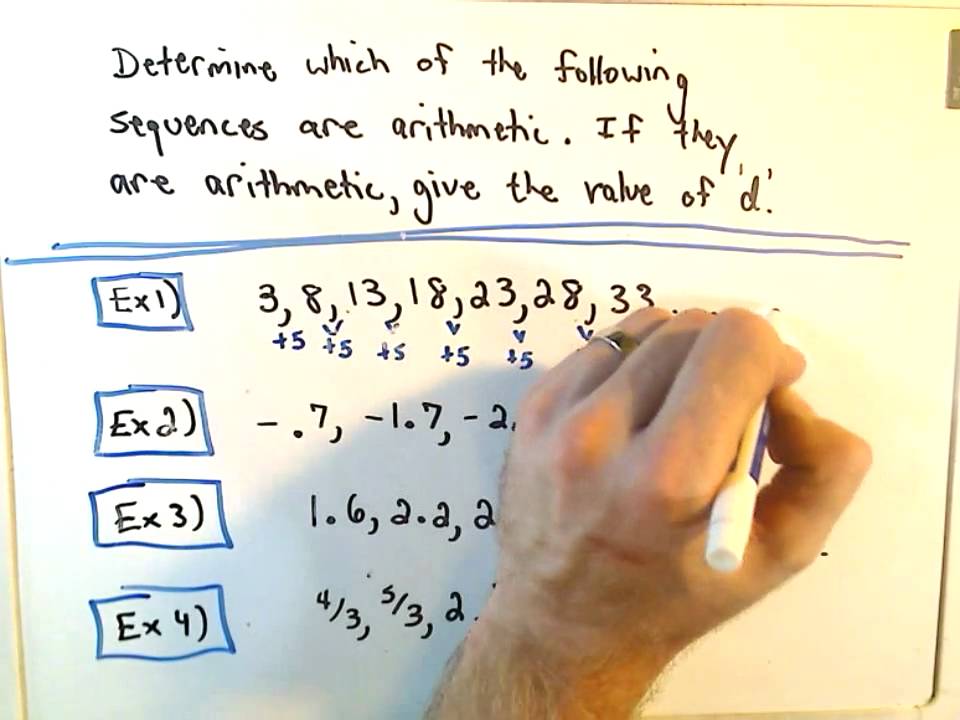 Determine which of the following
sequences are arithmetic. If they
are arithmetic, give the value of 'd'.
Ex 1) 3, 8, 13, 18, 23, 28, 33 . . .
+5 +5 +5 +5 +5
Ex 2) - .7, -1.7, -2.
Ex 3) 1.6, 2.2, 2
Ex 4) 4/3, 5/3, 2